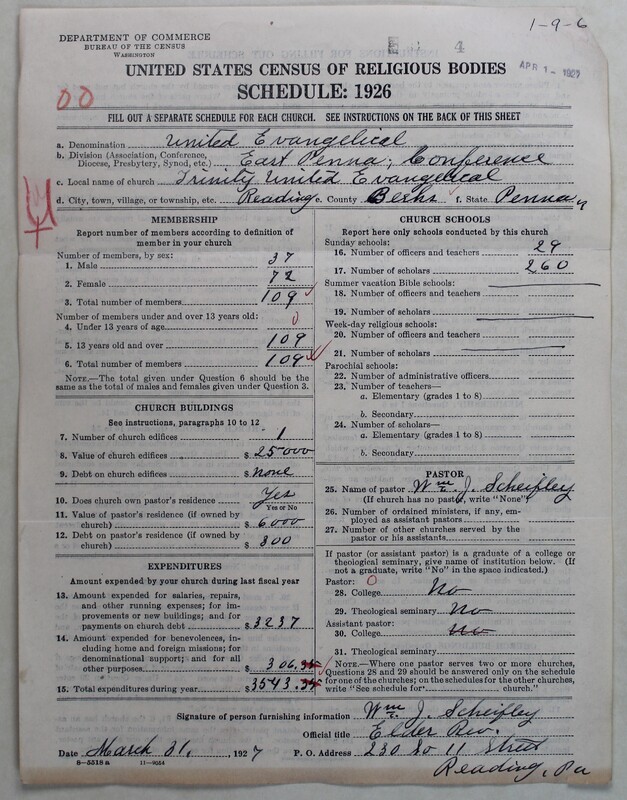 1-9-6
DEPARTMENT OF COMMERCE
BUREAU OF THE CENSUS
WASHINGTON
4
APR 1 - 1927
UNITED STATES CENSUS OF RELIGIOUS BODIES
SCHEDULE: 1926
00
FILL OUT A SEPARATE SCHEDULE FOR EACH CHURCH. SEE INSTRUCTIONS ON THE BACK OF THIS SHEET
a. Denomination United Evangelical
b. Division (Association, Conference, Diocese, Presbytery, Synod, etc.) East Penna, Conference
c. Local name of church Trinity United Evangelical
d. City, town, village, or township, etc. Reading e. County Berks f. State Penna
MEMBERSHIP
Report number of members according to definition of
member in your church
Number of members, by sex:
1. Male 37
2. Female 72
3. Total number of members 109
Number of members under and over 13 years old:
4. Under 13 years of age 0
5. 13 years old and over 109
6. Total number of members 109
NOTE.—The total given under Question 6 should be
the same as the total of males and females given under Question 3.
CHURCH BUILDINGS
See instructions, paragraphs 10 to 12
7. Number of church edifices 1
8. Value of church edifices $ 25000
9. Debt on church edifices $ None
10. Does church own pastor's residence Yes
Yes or No
11. Value of pastor's residence (if owned by
church) $ 6000
12. Debt on pastor's residence (if owned by
church) $ 800
EXPENDITURES
Amount expended by your church during last fiscal year
13. Amount expended for salaries, repairs,
and other running expenses; for im-
provements or new buildings; and for
payments on church debt $ 3237
14. Amount expended for benevolences, in-
cluding home and foreign missions; for
denominational support; and for all
other purposes $ 306.
15. Total expenditures during year $ 3543.
CHURCH SCHOOLS
Report here only schools conducted by this church
Sunday schools:
16. Number of officers and teachers 29
17. Number of scholars 260
Summer vacation Bible schools:
18. Number of officers and teachers
19. Number of scholars
Week-day religious schools:
20. Number of officers and teachers
21. Number of scholars
Parochial schools:
22. Number of administrative officers
23. Number of teachers—
a. Elementary (grades 1 to 8)
b. Secondary
24. Number of scholars—
a. Elementary (grades 1 to 8)
b. Secondary
PASTOR
25. Name of pastor Wm. J. Scheifley
(If church has no pastor, write "None")
26. Number of ordained ministers, if any, em-
ployed as assistant pastors
27. Number of other churches served by the
pastor or his assistants
If pastor (or assistant pastor) is a graduate of a college or
theological seminary, give name of institution below. (If
not a graduate, write "No" in the space indicated.)
Pastor: 0
28. College No
29. Theological seminary No
Assistant pastor:
30. College No
31. Theological seminary
NOTE.—Where one pastor serves two or more churches,
Questions 28 and 29 should be answered only on the schedule
for one of the churches; on the schedules for the other churches,
write "See schedule for church."
Signature of person furnishing information Wm. J. Scheifley
Official title Elder Rev.
Date March 31, 1927 P. O. Address 230 So 11 Street
8-5518 a 11-9054
Reading, Pa